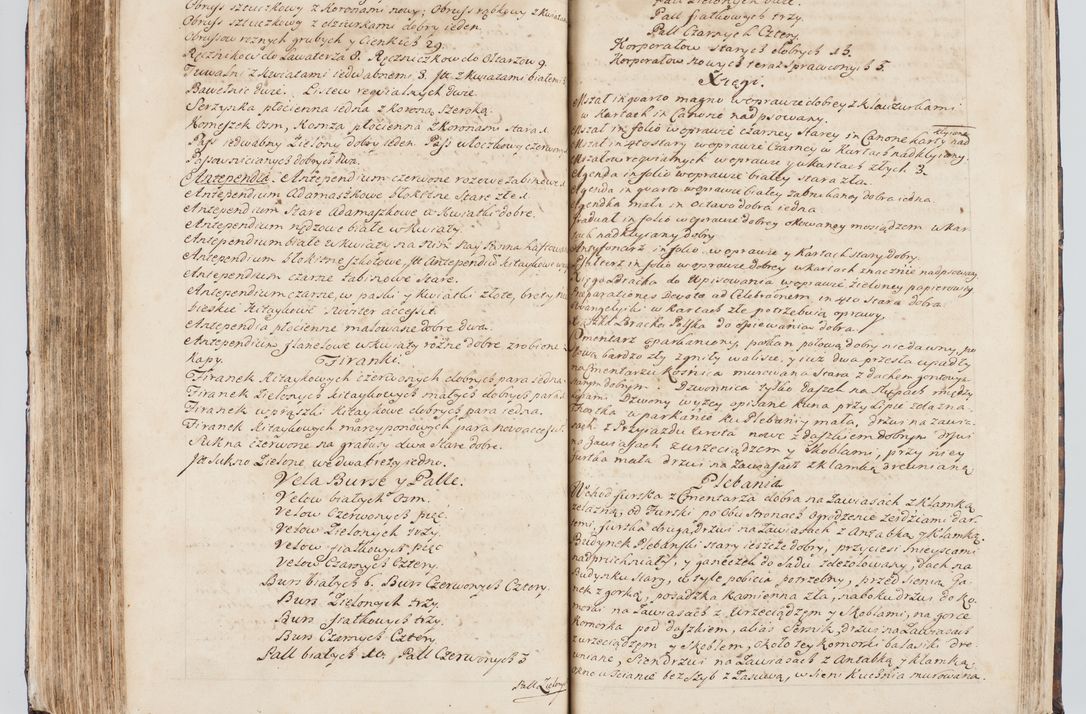 Obrus sztuczkowy z Koronami nowy, Obrus rąbkowy z Kwiatami
Obrus sztuczkowy z dziurkami dobry ieden.
Obrusow roznych grubych y Cienkich 29.
Ręcznikow do Lawaterza 6. Ręczniczkow do Ołtarzow 9.
Tuwalni z Kwiatami iedwabnemi 3. Jtt z kwazami białemi 3
Bawełnic dwie. Listew requialnych dwie.
Serzynka płocienna iedna z koroną szeroką.
Komeszek Osm, Komza płocienna z Koronami stara 1
Pass iedwabny Zielony dobry ieden. Pass włoczkowy czerwony
Pasow niciannych dobrych dwa.
Antependia. Antependium czerwone rozowe tabinowe 1
Antependium Adamaszkowe błękitne Stare złe 1.
Antependium Stare Adamaszkowe w Kwiatki dobre.
Antependium rądzowe białe w kwiaty.
Antependium białe w kwiaty na
Antependium błękitne szkotowe, Jtt Antependium kitaykowe
Antependium czarne tabinowe Stare.
Antependium czarne, w paski y kwiatki złote, brety nie
bieskie Kitaykowe Noviter accessit.
Antependia płocienne malowane dobre dwa.
Antependium flanelowe w kwiaty rożne dobre zrobione z
kapy.
Firanki.
Firanek Kitaykowych czerwonych dobrych para iedna
Firanek Zielonych kitaykowych małych dobrych para 1
Firanek w prążki kitaykowe dobrych para iedna.
Firanek kitaykowych maryponowych para novo accessit.
Sukna czerwone na gradusy dwa Stare dobre.
Jtt Sukno Zielone we dwa brety iedno.
Vela Bursę y Palle.
Velow białych Osm.
Velow Czerwonych pięc.
Velow Zielonych trzy.
Velow fiałkowych pięc
Velow Czarnych Cztery.
Burs białych 6. Burs Czerwonych Cztery.
Burs Zielonych trzy.
Burs fiałkowych trzy.
Burs Czarnych Cztery.
Pall białych 10, Pall Czerwonych 3
Pall Zielony
Pall Zielonych dwie.
Pall fiałkowych trzy.
Pall Czarnych Cztery.
Korporałow starych dobrych 15.
Korporałow nowych teraz sprawionych 5.
Xięgi.
Mszał in quarto magno w oprawie dobrey z klauzurkami
w Kartach in Canone nadpsowany.
Mszał in folio w oprawie czarney Starey in Canone karty nad
Mszał in 4to stary w oprawie Czarney w Kartach nadklejony.
Mszałow requialnych w oprawie y w kartach złych 3.
Agenda in folio w oprawie białey stara zła.
Agenda in quarto w oprawie białey zabrukaney dobra iedna.
Agendka mała in Octavo dobra iedna.
Graduał in folio w oprawie dobrey okowaney mosiądzem w kar-
tach nadklejany dobry.
Antyfonarz in folio w oprawie y Kartach stary dobry.
Psałterz in folio w oprawie dobrey w kartach znacznie nadpsowany
do Wpisowania w oprawie zieloney papierowey
Præparationes Devotæ ad Celebrationem in 4to Stara dobra.
Ewangelyik w kartach złe potrzebuią oprawy.
Polska do spiewania dobra.
Cmentarz oparkaniony, parkan połową dobry niedawny, po-
łowa bardzo zły zgniły wali się, y iuż dwa przęsła upadły
na Cmentarzu Kośnica murowana Stara z dachem gontowym
Starym dobrym. Dzwonnica tylko daszek na słupach między
lipami. Dzwony wyżey opisane kuna przy Lipie żelazna.
Fortka w parkanie ku Plebanij mała, drzwi na zawia-
sach z Przyiazdu Wrota nowe z daszkiem dobrym drzwi
na zawiasach z wrzeciądzem y Skoblami, przy niey
furtka mała drzwi na zawiasach z klamką drewnianą
Plebania
Wchod furtka z Cmentarza dobra na zawiasach z klamką
zelazną, od Furtki po obu Stronach ogrodzenie żerdziami dar-
temi, furtka druga, drzwi na zawiasach z Antabką y klamką.
Budynek Plebański stary ieszcze dobry, przyciesi mieyscami
nadpruchniały, y ganeczek do Sadu zdezelowany, dach na
Budynku Stary, w tyle pobicia potrzebny, przed Sienią Ga-
nek z gorką, posadzka kamienna zła, na boku drzwi do Ko-
mory na zawiasach z Wrzeciądzem y Skoblami, na gorce
komorka pod daszkiem, alias Serwik, drzwi na zawiasach
z wrzeciądzem y Skoblem, około tey komorki balaski dre-
wniane, Sien drzwi na zawiasach z Antabką y klamką
okno w ścianie bez szyb z Zasuwą, w Sieni Kuchnia murowana